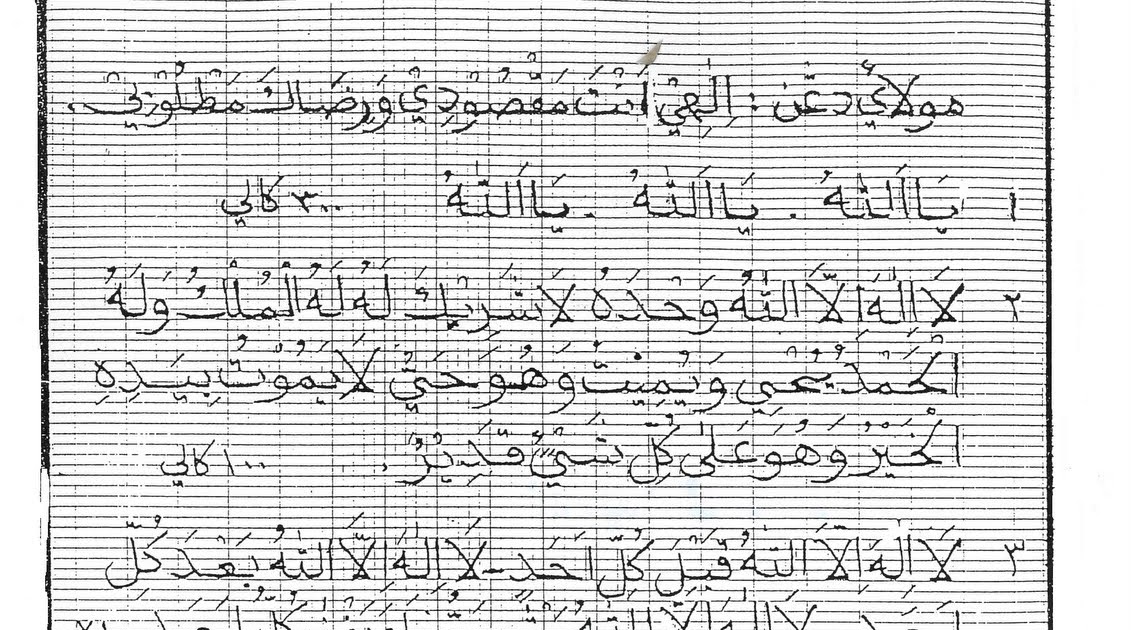 مولاي دغن : إِلٰهِيْ أَنْتَ مَقْصُوْدِيْ وَرِضَاكَ مَطْلُوْبِيْ.
١ يَا اَللّٰهُ . يَا اَللّٰهُ . يَا اَللّٰهُ ٣٠٠ كالي
٢ لَا اِلٰهَ اِلَّا اللّٰهُ وَحْدَهُ لَا شَرِيْكَ لَهُ لَهُ الْمُلْكُ وَلَهُ
الْحَمْدُ يُحْيِي وَيُمِيْتُ وَهُوَ حَيٌّ لَا يَمُوْتُ بِيَدِهِ
الْخَيْرُ وَهُوَ عَلٰى كُلِّ شَيْءٍ قَدِيْرٌ. ١٠٠ كالي
٣ لَا اِلٰهَ اِلَّا اللّٰهُ قَبْلَ كُلِّ اَحَدٍ - لَا اِلٰهَ اِلَّا اللّٰهُ بَعْدَ كُلِّ